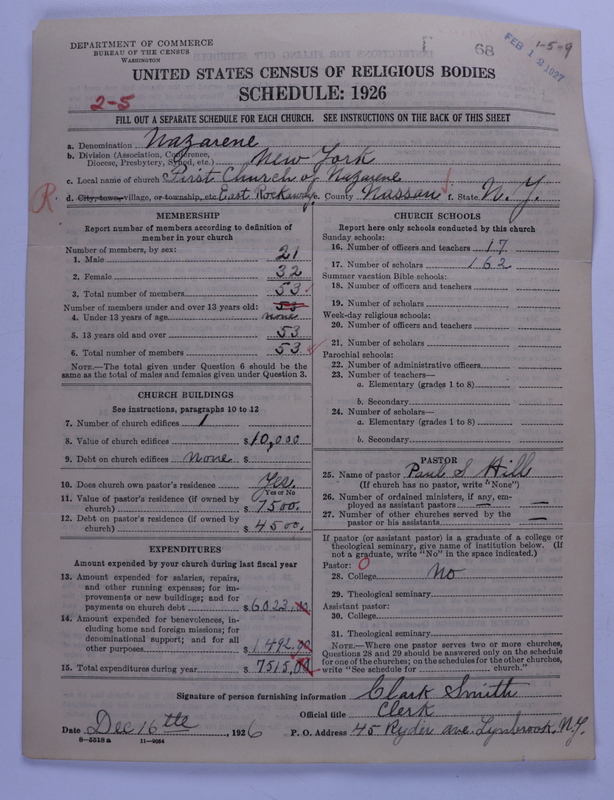 DEPARTMENT OF COMMERCE
BUREAU OF THE CENSUS
WASHINGTON
68
FEB 12 1927
1-5-9
UNITED STATES CENSUS OF RELIGIOUS BODIES
SCHEDULE: 1926
2-5
FILL OUT A SEPARATE SCHEDULE FOR EACH CHURCH. SEE INSTRUCTIONS ON THE BACK OF THIS SHEET
a. Denomination Nazarene
b. Division (Association, Conference,
Diocese, Presbytery, Synod, etc.) New York
c. Local name of church First Church of Nazarene
R d. City, town, village, or township, etc. East Rockaway e. County Nassau f. State N.Y.
MEMBERSHIP
Report number of members according to definition of
member in your church
Number of members, by sex:
1. Male 21
2. Female 32
3. Total number of members 53
Number of members under and over 13 years old: 53
4. Under 13 years of age none
5. 13 years old and over 53
6. Total number of members 53
NOTE.—The total given under Question 6 should be
same as the total of males and females given under Question 3.
CHURCH BUILDINGS
See instructions, paragraphs 10 to 12
7. Number of church edifices 1
8. Value of church edifices $10,000
9. Debt on church edifices none $
10. Does church own pastor's residence Yes
Yes or No
11. Value of pastor's residence (if owned by
church) $7500.
12. Debt on pastor's residence (if owned by
church) $4500.
EXPENDITURES
Amount expended by your church during last fiscal year
13. Amount expended for salaries, repairs,
and other running expenses; for im-
provements or new buildings; and for
payments on church debt $6023.00
14. Amount expended for benevolences, in-
cluding home and foreign missions; for
denominational support; and for all
other purposes $1492.00
15. Total expenditures during year $7515.00
CHURCH SCHOOLS
Report here only schools conducted by this church
Sunday schools:
16. Number of officers and teachers 17
17. Number of scholars 162
Summer vacation Bible schools:
18. Number of officers and teachers
19. Number of scholars
Week-day religious schools:
20. Number of officers and teachers
21. Number of scholars
Parochial schools:
22. Number of administrative officers
23. Number of teachers—
a. Elementary (grades 1 to 8)
b. Secondary
24. Number of scholars—
a. Elementary (grades 1 to 8)
b. Secondary
PASTOR
25. Name of pastor Paul S Hill
(If church has no pastor, write "None")
26. Number of ordained ministers, if any, em-
ployed as assistant pastors —
27. Number of other churches served by the
pastor or his assistants —
If pastor (or assistant pastor) is a graduate of a college or
theological seminary, give name of institution below. (If
not a graduate, write "No" in the space indicated.)
Pastor: 0
28. College No
29. Theological seminary
Assistant pastor:
30. College
31. Theological seminary
NOTE.—Where one pastor serves two or more churches,
Questions 28 and 29 should be answered only on the schedule
for one of the churches; on the schedules for the other churches,
write "See schedule for church."
Signature of person furnishing information Clark Smith
Official title Clerk
Date Dec 16th, 1926 P. O. Address 45 Ryder ave. Lynbrook, N.Y.
8-5518a 11-9064